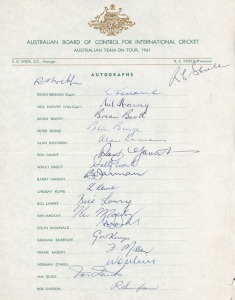 AUSTRALIAN BOARD OF CONTROL FOR INTERNATIONAL CRICKET
AUSTRALIAN TEAM ON TOUR, 1961
S. G. WEBB, Q.C., Manager
R. C. STEELE, Treasurer
AUTOGRAPHS
RICHIE BENAUD (Capt.)
NEIL HARVEY (Vice-Capt.) Neil Harvey
BRIAN BOOTH Brian Booth
PETER BURGE Peter Burge
ALAN DAVIDSON Alan Davidson
RON GAUNT
WALLY GROUT
BARRY JARMAN B Jarman
LINDSAY KLINE L Kline
BILL LAWRY Bill Lawry
KEN MACKAY Ken Mackay
COLIN McDONALD
GRAHAM McKENZIE
FRANK MISSON F Misson
NORMAN O'NEILL
IAN QUICK
BOB SIMPSON